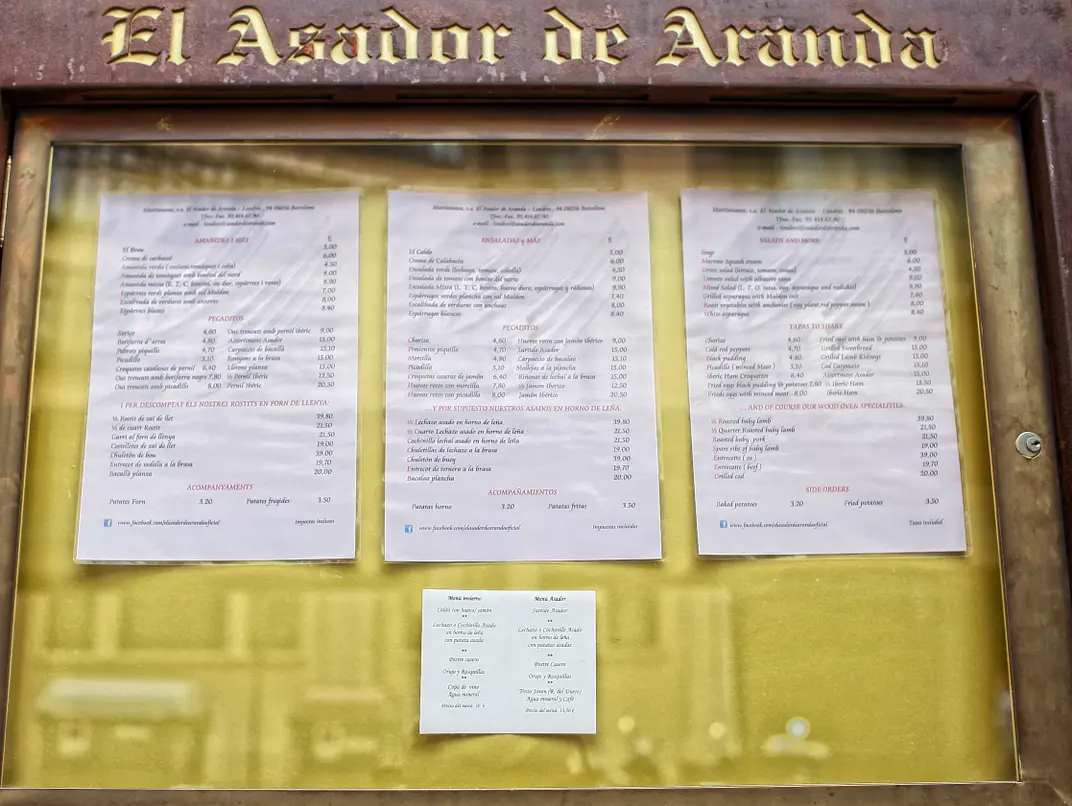 El Asador de Aranda
AMANIDES I MÉS €
El Brou 5,00
Crema de carbassó 6,00
Amanida verda (enciam,tomàquet i ceba) 4,50
Amanida de tomàquet amb bonítol del nord 9,00
Amanida mixta (E, T, C, bonítol, ou dur, espàrrecs i raves) 9,90
Espàrrecs verds planxa amb sal Maldon 7,40
Escalivada de verdures amb anxoves 8,00
Espàrrecs blancs 8,40
PECADITOS
Xoriço 4,60 Ous trencats amb pernil ibèric 9,00
Botifarra d'arròs 4,80 Assortiment Asador 15,00
Pebrots piquillo 4,70 Carpaccio de bacallà 15,10
Picadillo 5,10 Ronyons a la brasa 15,00
Croquetes casolanes de pernil 6,40 Lletons planxa 15,00
Ous trencats amb botifarra negra 7,80 ½ Pernil Ibèric 12,50
Ous trencats amb picadillo 8,00 Pernil Ibèric 20,50
I PER DESCOMPTAT ELS NOSTRES ROSTITS EN FORN DE LLENYA:
½ Rostit de xai de llet 39,80
½ de quart Rostit 21,50
Garrí al forn de llenya 21,50
Costelletes de xai de llet 19,00
Chuletón de bou 39,00
Entrecot de vedella a la brasa 19,70
Bacallà planxa 20,00
ACOMPANYAMENTS
Patates Forn 3.20 Patates fregides 3.50
www.facebook.com/elasadordearandaoficial Impostos inclusos
Maretinantes, s.a. El Asador de Aranda – Londres , 94 08036 Barcelona
Tfno - Fax. 93.414.67.90
ENSALADAS y MÁS €
El Caldo 5,00
Crema de Calabacín 6,00
Ensalada verde (lechuga, tomate, cebolla) 4,50
Ensalada de tomate con bonito del norte 9,00
Ensalada Mixta (L, T, C, bonito, huevo duro, espárragos y rábanos) 9,90
Espárragos verdes plancha con sal Maldon 7,40
Escalibada de verduras con anchoas 8,00
Espárragos blancos 8,40
PECADITOS
Chorizo 4,60 Huevos rotos con jamón ibérico 9,00
Pimientos piquillo 4,70 Surtido Asador 15,00
Morcilla 4,80 Carpaccio de bacalao 15,10
Picadillo 5,10 Mollejas a la plancha 15,00
Croquetas caseras de jamón 6,40 Riñones de lechal a la brasa 15,00
Huevos rotos con morcilla 7,80 ½ Jamón Ibérico 12,50
Huevos rotos con picadillo 8,00 Jamón Ibérico 20,50
...Y POR SUPUESTO NUESTROS ASADOS EN HORNO DE LEÑA:
½ Lechazo asado en horno de leña 39,80
½ Cuarto Lechazo asado en horno de leña 21,50
Cochinillo lechal asado en horno de leña 21,50
Chuletillas de lechazo a la brasa 19,00
Chuletón de buey 39,00
Entrecot de ternera a la brasa 19,70
Bacalao plancha 20,00
ACOMPAÑAMIENTOS
Patatas horno 3.20 Patatas fritas 3.50
www.facebook.com/elasadordearandaoficial Impuestos incluidos
SALADS AND MORE €
Soup 5,00
Marrow Squash cream 6,00
Green salad (lettuce, tomato, onion) 4,50
Tomato salad with albacore tuna 9,00
Mixed Salad (L, T, O, tuna, egg, asparagus and radishes) 9,90
Grilled asparagus with Maldon salt 7,40
Roast vegetables with anchovies (egg plant,red pepper onion) 8,00
White asparagus 8,40
TAPAS TO SHARE
Chorizo 4,60 Fried eggs with ham & potatoes 9,00
Cold red peppers 4,70 Grilled Sweetbread 15,00
Black pudding 4,80 Grilled Lamb Kidneys 15,00
Picadillo ( minced Meat ) 5,10 Cod Carpaccio 15,10
Iberic Ham Croquettes 6,40 Assortment Asador 15,00
Fried eggs black pudding & potatoes 7,80 ½ Iberic Ham 12,50
Frieds eggs with minced meat 8,00 Iberic Ham 20,50
...AND OF COURSE OUR WOOD OVEN SPECIALITIES:
½ Roasted baby lamb 39,80
½ Quarter Roasted baby lamb 21,50
Roasted baby pork 21,50
Spare ribs of baby lamb 19,00
Entrecotte ( ox ) 39,00
Entrecotte ( beef ) 19,70
Grilled cod 20,00
SIDE ORDERS
Baked potatoes 3.20 Fried potatoes 3.50
www.facebook.com/elasadordearandaoficial Taxes included
Menú invierno
Caldo con huevo/ jamón
**
Lechazo o Cochinillo Asado
en horno de leña
con patata asada
**
Postre casero
Orujo y Rosquillas
**
Copa de vino
Agua mineral
Menú Asador
Surtido Asador
**
Lechazo o Cochinillo Asado
en horno de leña
con patatas asadas
**
Postre Casero
Orujo y Rosquillas
**
Tinto Joven (R. del Duero)
Agua mineral y Café